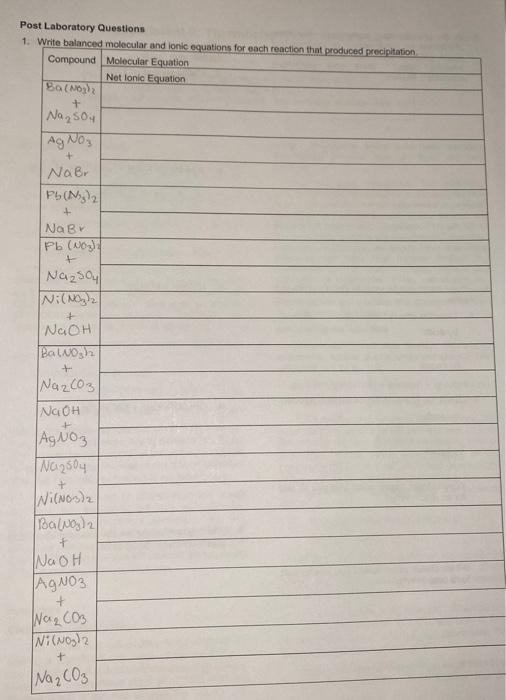 Post Laboratory Questions
1. Write balanced molecular and ionic equations for each reaction that produced precipitation.
Compound
Molecular Equation
Net Ionic Equation
Ba(NO3)2
+
Na2SO4
AgNO3
+
NaBr
Pb(N3)2
+
NaBr
Pb(NO3)2
+
Na2SO4
Ni(NO3)2
+
NaOH
Ba(NO3)2
+
Na2CO3
NaOH
+
AgNO3
Na2SO4
+
Ni(NO3)2
Ba(NO3)2
+
NaOH
AgNO3
+
Na2CO3
Ni(NO3)2
+
Na2CO3